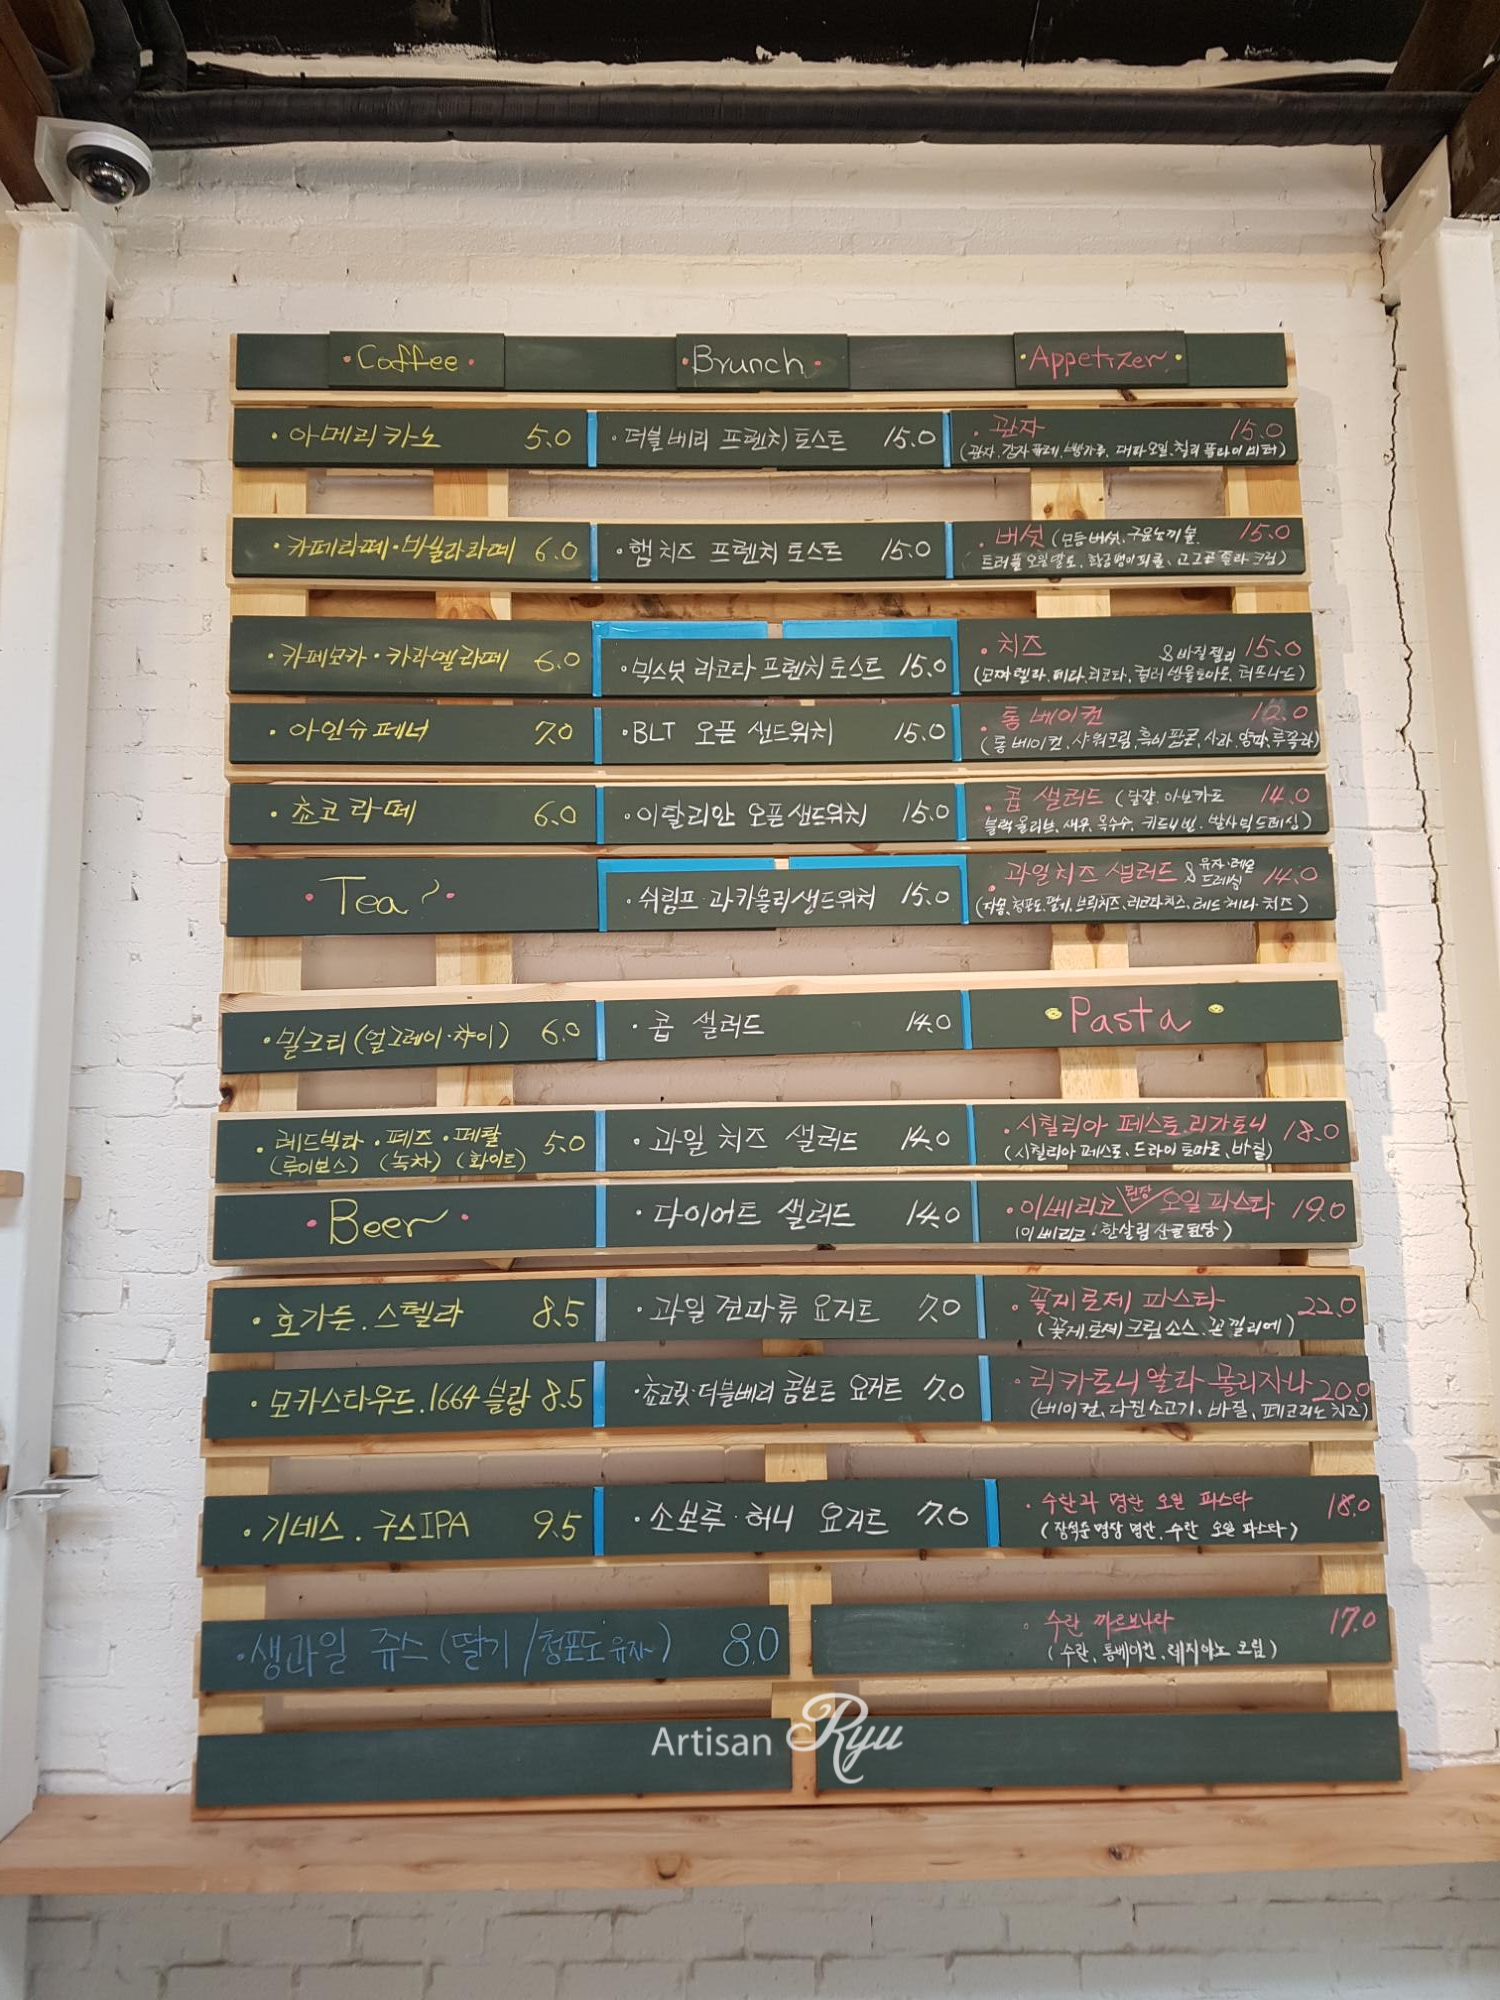 Coffee
Brunch
Appetizer
· 아메리카노 5.0
· 더블베리 프렌치토스트 15.0
· 관자 15.0
(관자, 감자퓨레, 대파오일, 칠리
· 카페라떼 · 바닐라라떼 6.0
· 햄치즈 프렌치토스트 15.0
· 버섯 (모듬버섯, 15.0
트러플오일 고르곤졸라 크림)
· 카페모카 · 카라멜라떼 6.0
· 믹스넛 리코타 프렌치토스트 15.0
· 치즈 &바질젤리 15.0
(모짜렐라, 페타, 리코타, 컬러방울토마토,
· 아인슈페너 7.0
· BLT 오픈 샌드위치 15.0
· 통베이컨
(통베이컨, 샤워크림,
· 쵸코라떼 6.0
· 이탈리안 오픈샌드위치 15.0
· 콥 샐러드 (달걀, 아보카도 14.0
블랙올리브, 새우, 옥수수, 키드니빈, 발사믹드레싱)
· Tea ·
· 쉬림프 과카몰리샌드위치 15.0
· 과일치즈 샐러드 & 유자·레몬 드레싱 14.0
(자몽, 청포도, 딸기, 브리치즈, 리코타치즈, 레드체다 치즈)
· 밀크티 (얼그레이·차이) 6.0
· 콥 샐러드 14.0
Pasta
· 레드빅타 · 페즈 · 페탈 5.0
(루이보스) (녹차) (화이트)
· 과일 치즈 샐러드 14.0
· 시칠리아 페스토 리가토니 18.0
(시칠리아 페스토, 드라이토마토, 바질)
· Beer ·
· 다이어트 샐러드 14.0
· 이베리코 된장 오일 파스타 19.0
(이베리코 · 한살림 산골된장)
· 호가든 . 스텔라 8.5
· 과일 견과류 요거트 7.0
· 꽃게로제 파스타 22.0
(꽃게, 로제크림소스, 꼰낄리에)
· 모카스타우드 . 1664블랑 8.5
· 쵸코릿·더블베리 콤보트 요거트 7.0
· 리카토니 알라 몰리지나 20.0
(베이컨, 다진소고기, 바질, 페코리노 치즈)
· 기네스 . 구스IPA 9.5
· 소보루 · 허니 요거트 7.0
· 수란과 명란 오일 파스타 18.0
(장석준 명장 명란, 수란 오일 파스타)
· 생과일 쥬스 (딸기 / 청포도 유자) 8.0
· 수란 까르보나라 17.0
(수란, 통베이컨, 레지아노 크림)
Artisan Ryu